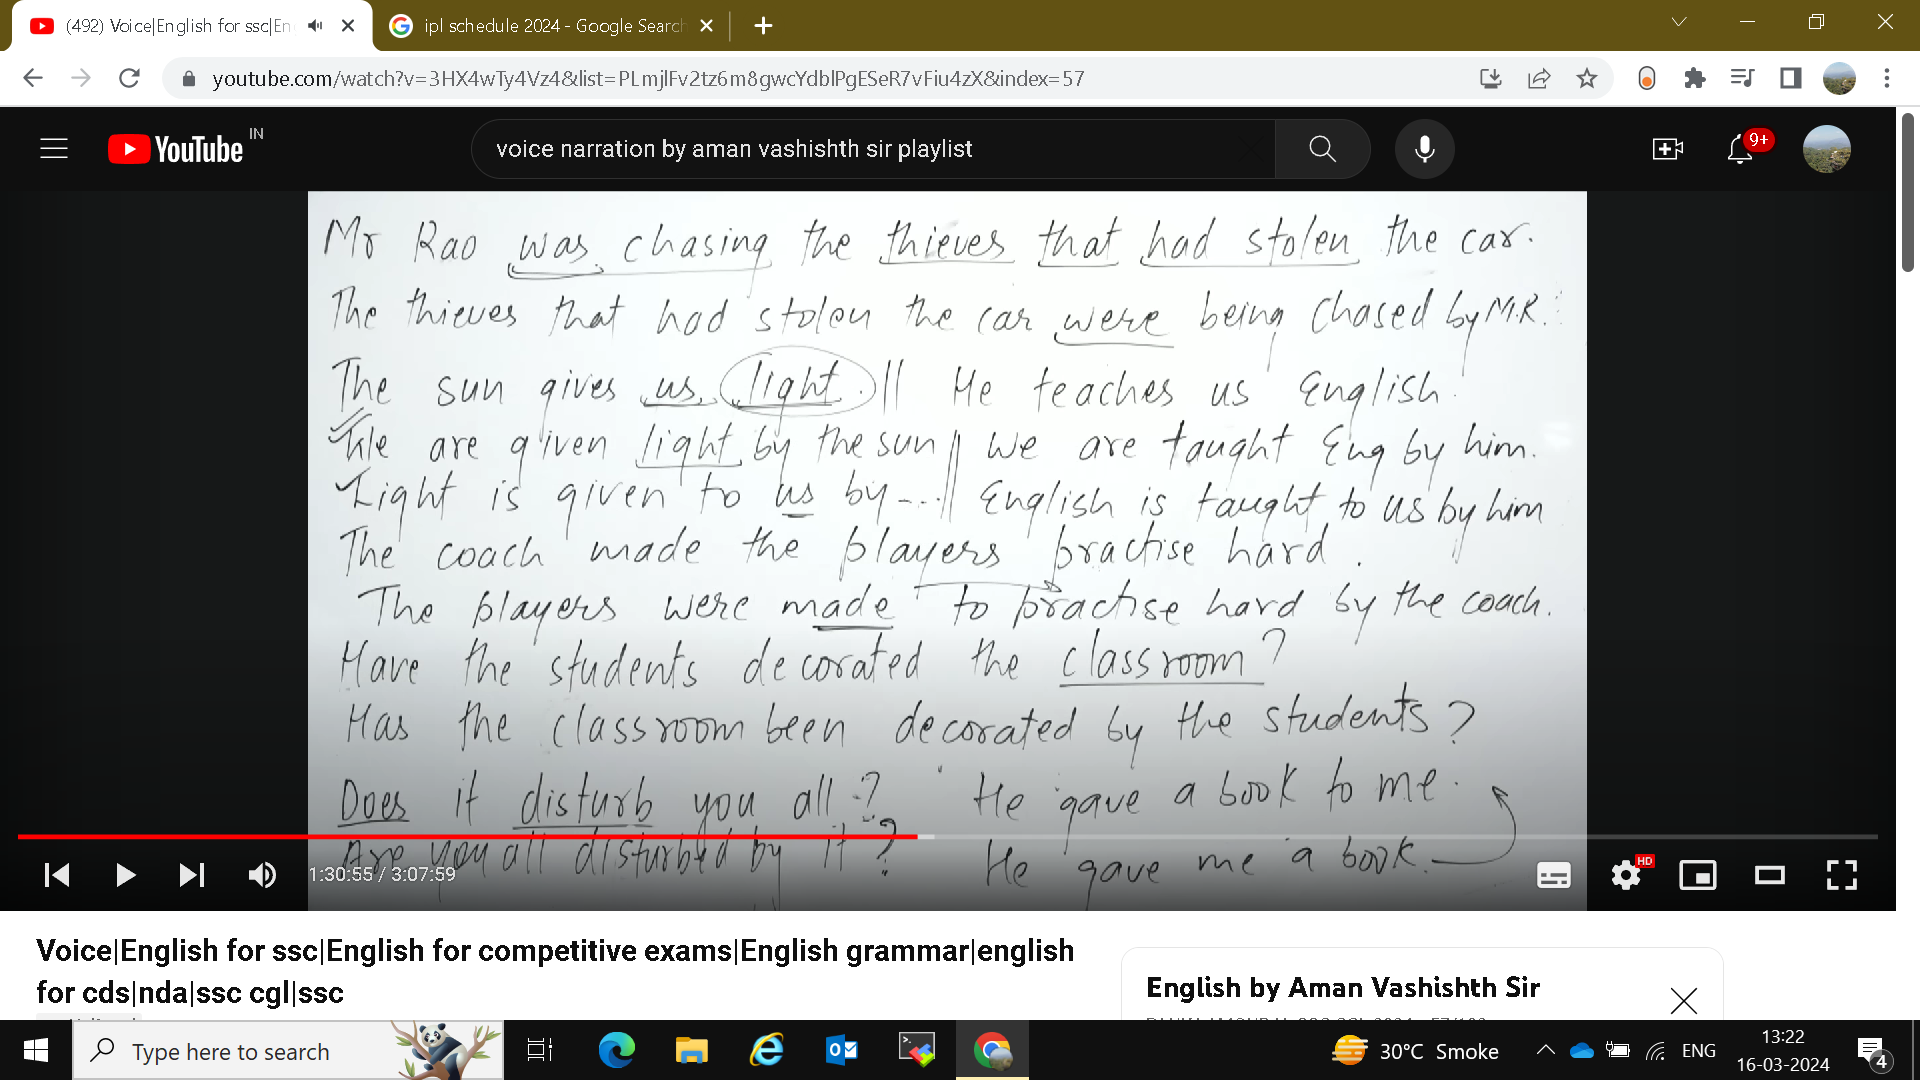 (492) Voice|English for ssc|En
ipl schedule 2024 - Google Search
youtube.com/watch?v=3HX4wTy4Vz4&list=PLmjlFv2tz6m8gwcYdblPgESeR7vFiu4zX&index=57
YouTube IN
voice narration by aman vashishth sir playlist
9+
Mr Rao was chasing the thieves that had stolen the car.
The thieves that had stolen the car were being chased by M.R.
The sun gives us light. || He teaches us English.
We are given light by the sun || We are taught Eng by him.
Light is given to us by --- || English is taught to us by him
The coach made the players practise hard.
The players were made to practise hard by the coach.
Have the students decorated the classroom?
Has the classroom been decorated by the students?
Does it disturb you all? He gave a book to me.
Are you all disturbed by it? He gave me a book.
1:30:55 / 3:07:59
HD
Voice|English for ssc|English for competitive exams|English grammar|english
for cds|nda|ssc cgl|ssc
English by Aman Vashishth Sir
Type here to search
30°C Smoke
ENG
13:22
16-03-2024
4